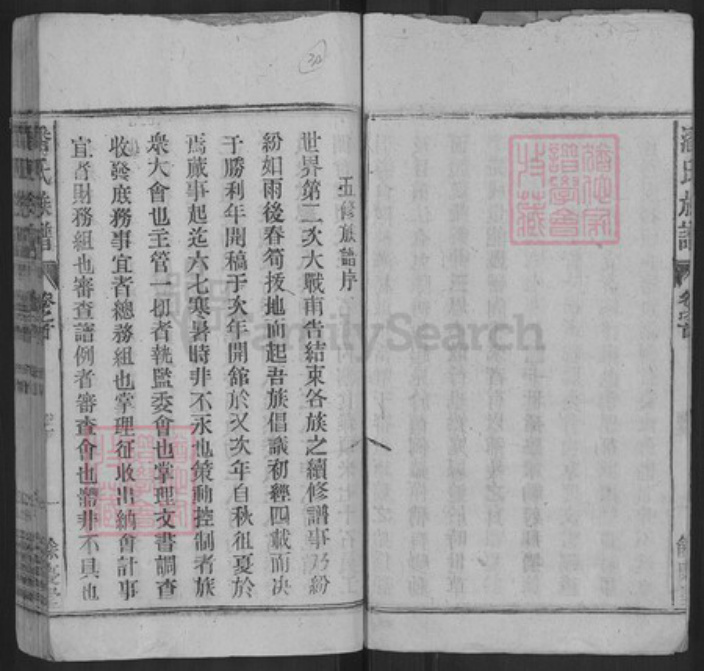 五修族譜序
世界第二次大戰甫告結束各族之續修譜事乃紛
紛如雨後春筍拔地而起吾族倡議初經四載而决
于勝利年開稿于次年開舘於又次年自秋徂夏於
焉蕆事起迄六七寒暑時非不永也策動控制者族
衆大會也主管一切者執監委會也掌理文書調查
收發庶務事宜者總務組也掌理征收出納會計事
宜者財務組也審查譜例者審查會也體非不具也
潘氏族譜
卷之首
潘氏族譜
卷之首
FamilySearch